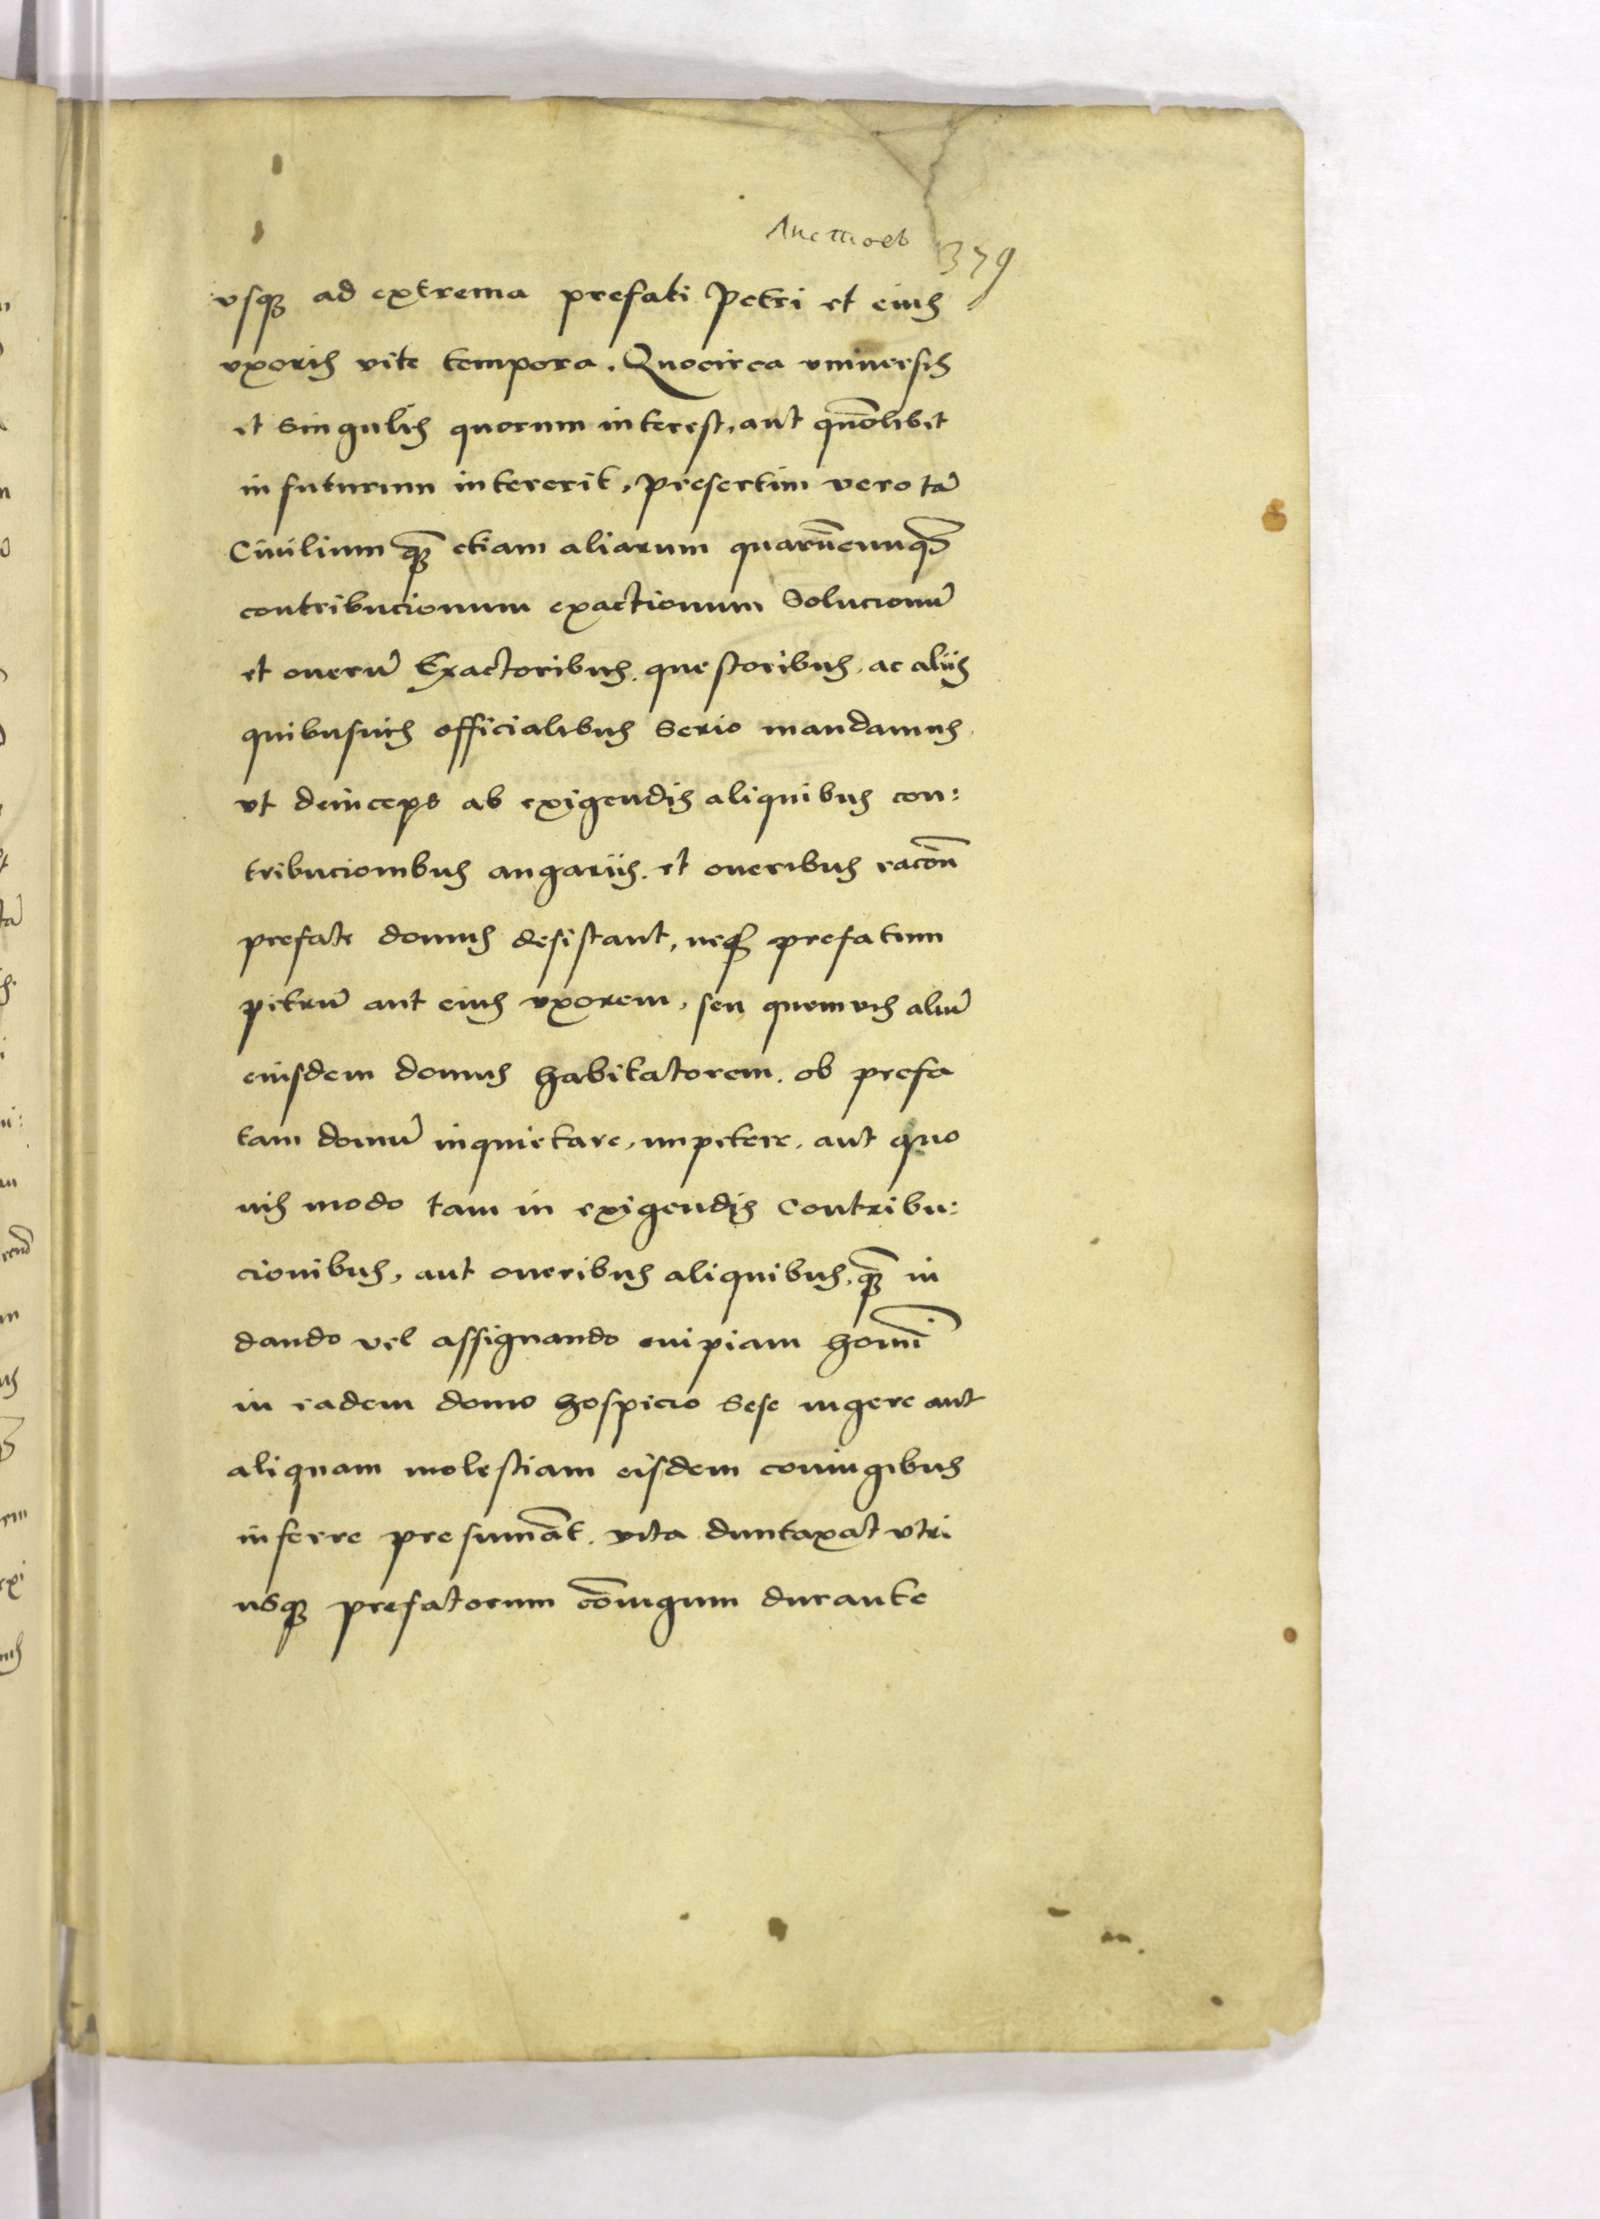 Листов 379
vsq3 ad extrema prefati Petri et eius
vxoris vite tempora. Quocirca vniuersis
et Singulis quorum interest, aut quo͞olibet
in futurum intererit, presertim vero ta᷄
Ciuilium q̄3 etiam aliarum quaru͞cunq3
contribucionum exactionum Solucionu᷄
et oneru᷄ Exactoribus. questoribus. ac aliis
quibusuis officialibus Serio mandamus.
vt deinceps ab exigendis aliquibus con:
tribucionibus angariis. et oneribus raco͞n
prefate domus desistant, neq3 prefatum
petru᷄ aut eius vxorem, seu quemuis aliu᷄
eiusdem domus habitatorem. ob prefa
tam domu᷄ inquietare, impetere. aut quo
uis modo tam in exigendis Contribu:
cionibus, aut oneribus aliquibus, q̄3 in
dando vel assignando cuipiam homi͞
in eadem domo hospicio Sese ingere aut
aliquam molestiam eisdem coniugibus
inferre presuma͞t. vita duntaxat vtri
usq3 prefatorum co͞iugum durante